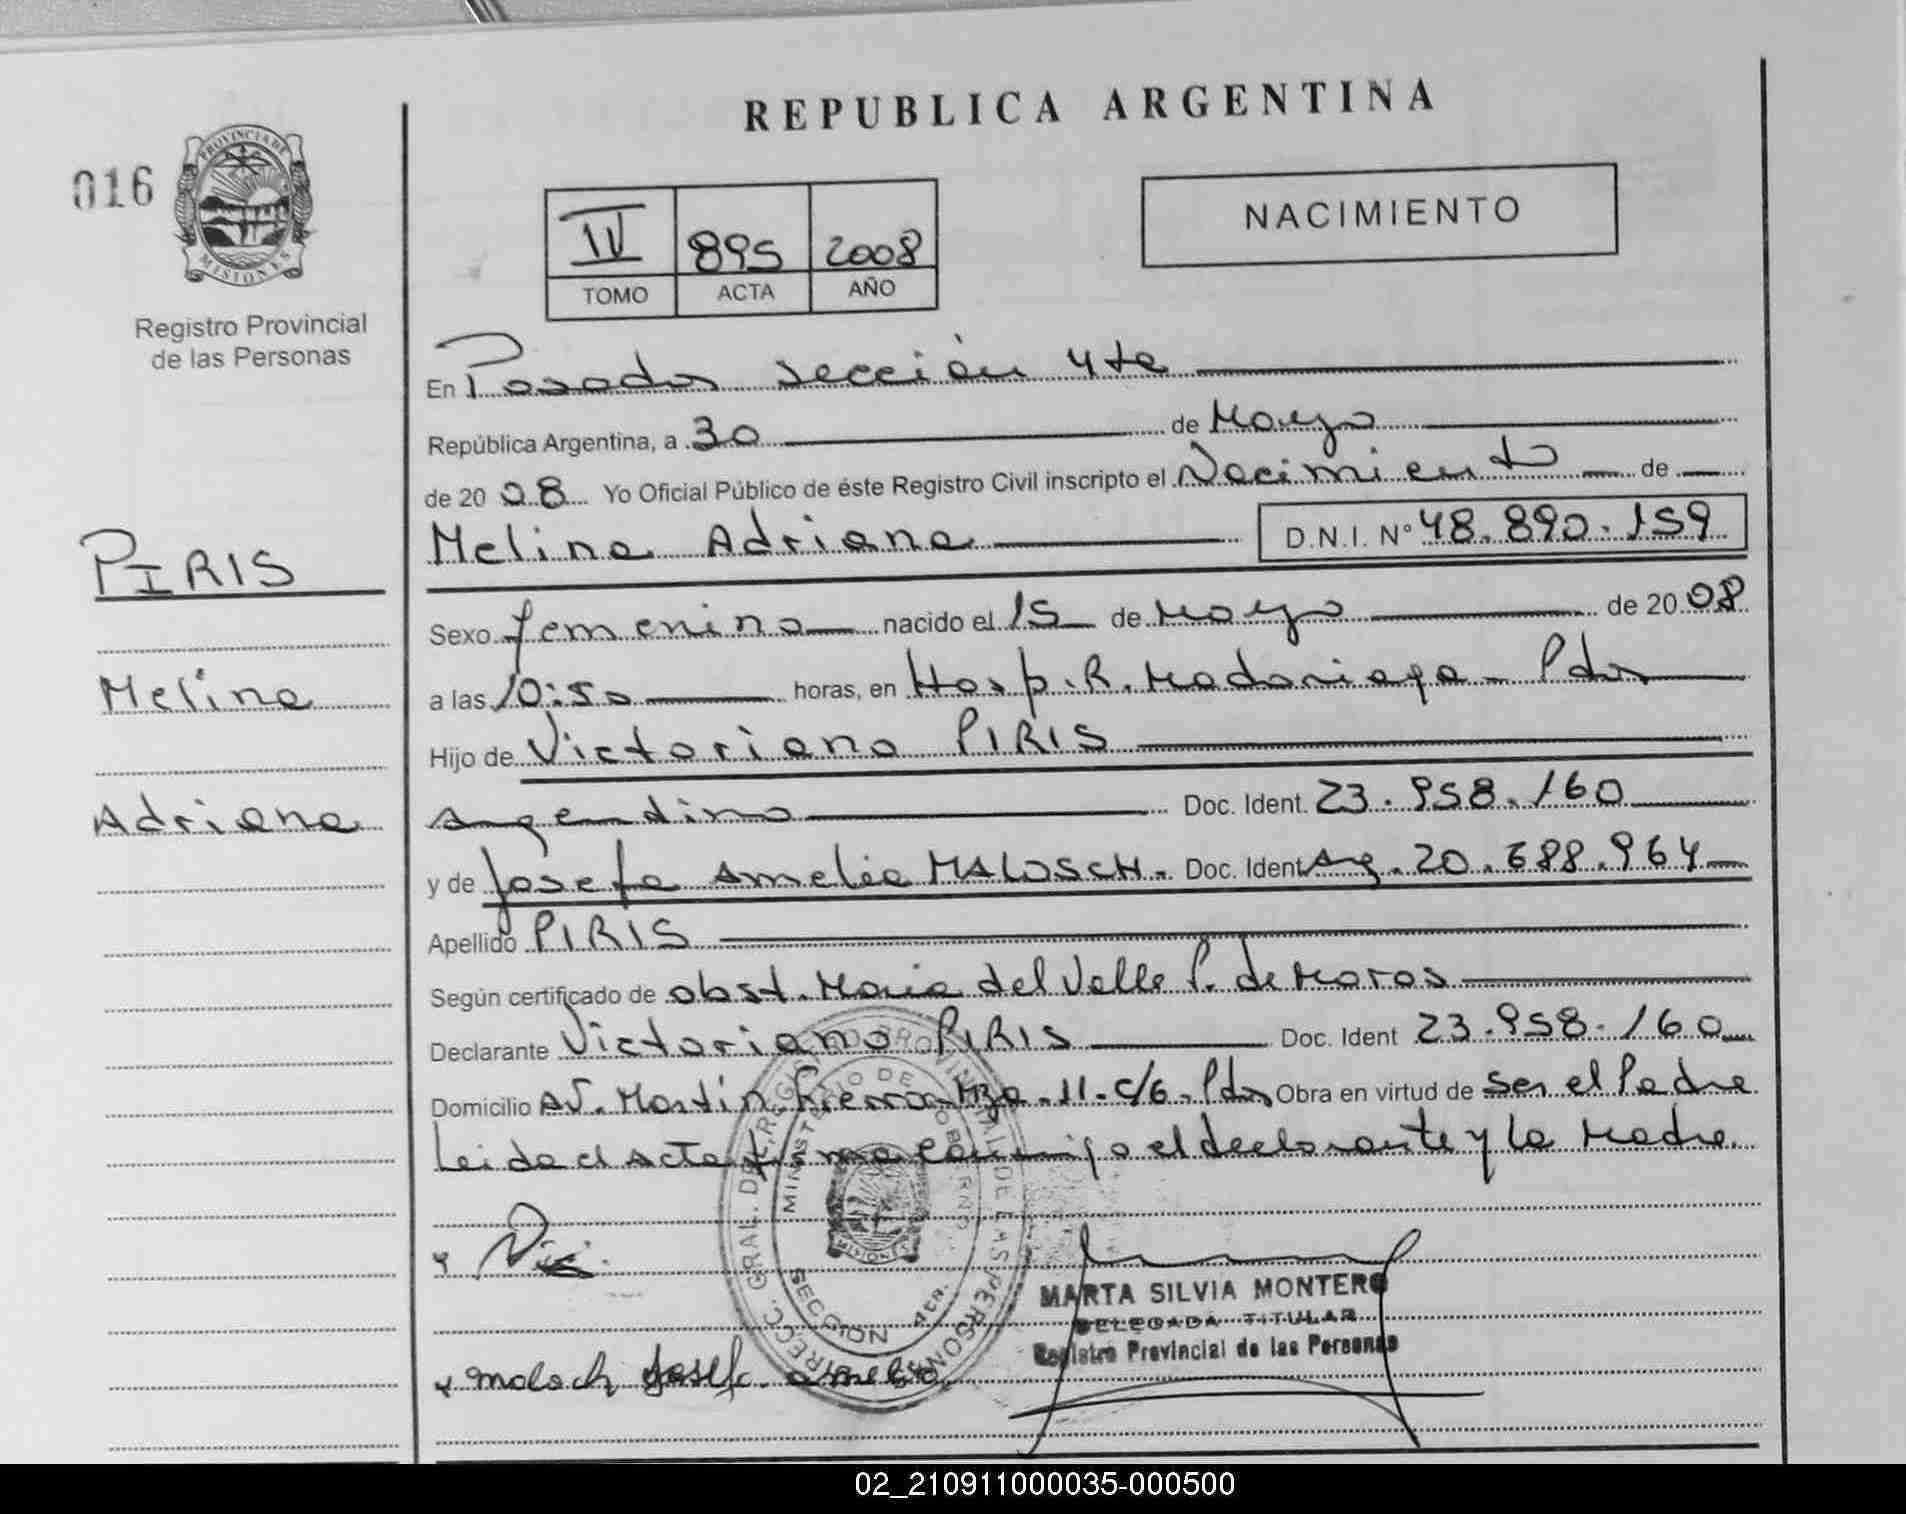 REPUBLICA ARGENTINA
016
PROVINCIA DE
MISIONES
Registro Provincial
de las Personas
IV 895 2008
TOMO ACTA AÑO
NACIMIENTO
PIRIS
Melina
Adriana
En Posadas sección 4ta
República Argentina, a 30 de Mayo
de 2008 Yo Oficial Público de éste Registro Civil inscripto el Nacimiento de
Melina Adriana D.N.I. N° 48.890.159
Sexo femenino nacido el 15 de Mayo de 2008
a las 10:50 horas, en Hosp. R. Madariaga - Pdas
Hijo de Victoriano PIRIS
Argentino Doc. Ident. 23.958.160
y de Josefa Amelia MALOSCH. Doc. Ident Arg. 20.688.964
Apellido PIRIS
Según certificado de obst. Maria del Valle P. de Moros
Declarante Victoriano PIRIS Doc. Ident 23.958.160
Domicilio Av. Martin Fierro Mza. 11 - C/6 - Pdas Obra en virtud de ser el Padre
Leida el Acta firma conmigo el declarante y la Madre
DIRECC. GRAL. DEL REGISTRO PROVINCIAL DE LAS PERSONAS
MINISTERIO DE GOBIERNO
MISIONES
SECCION 4ta.
MARTA SILVIA MONTERO
DELEGADA TITULAR
Registro Provincial de las Personas
Maloch Josefa Amelia
02_210911000035-000500